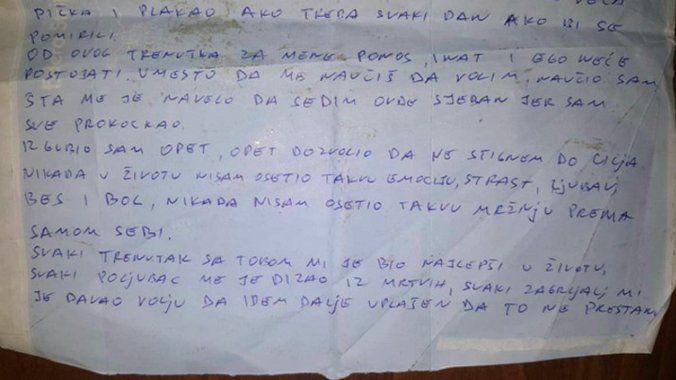 PIČKA I PLAKAO, AKO TREBA SVAKI DAN AKO BI SE
POMIRILI.
OD OVOG TRENUTKA ZA MENE PONOS, INAT I EGO NEĆE
POSTOJATI. UMESTO DA ME NAUČIŠ DA VOLIM, NAUČIO SAM
ŠTA ME JE NAVELO DA SEDIM OVDE SJEBAN JER SAM
SVE PROKOCKAO.
IZGUBIO SAM OPET, OPET DOZVOLIO DA NE STIGNEM DO CILJA
NIKADA U ŽIVOTU NISAM OSETIO TAKVU EMOCIJU, STRAST, LJUBAV,
BES I BOL, NIKADA NISAM OSETIO TAKVU MRŽNJU PREMA
SAMOM SEBI.
SVAKI TRENUTAK SA TOBOM MI JE BIO NAJLEPŠI U ŽIVOTU,
SVAKI POLJUBAC ME JE DIZAO IZ MRTVIH, SVAKI ZAGRLJAJ MI
JE DAVAO VOLJU DA IDEM DALJE UPLAŠEN DA TO NE PRESTANE